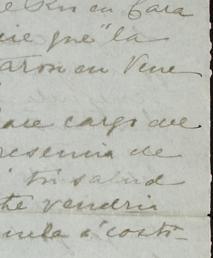 en Cara
que "la
aron en Vene
cargo del
resencia de
tu salud
te vendria
á costi-